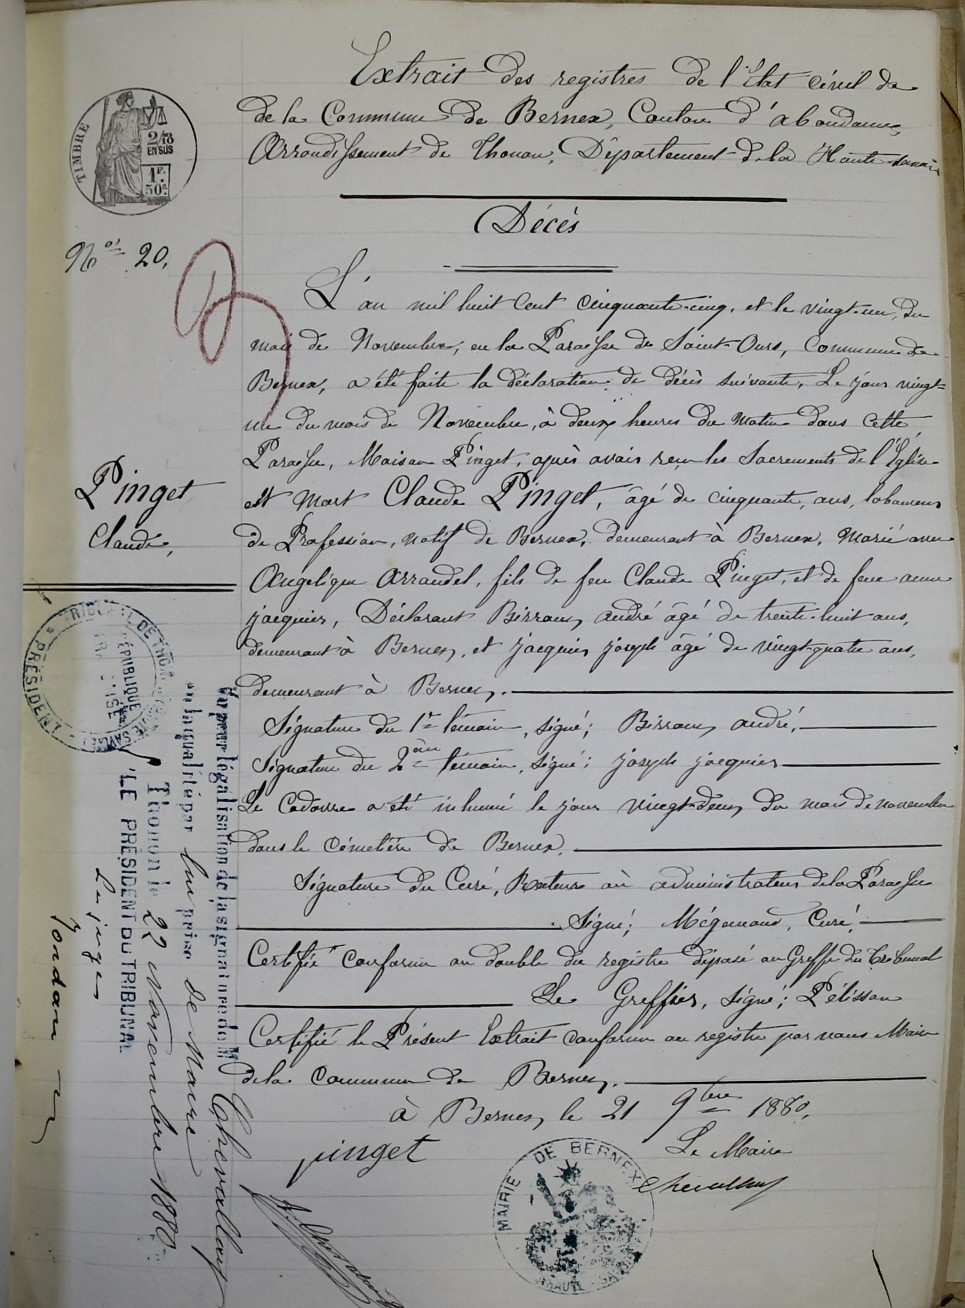 Extrait des registres de l'Etat Civil de
de la Commune de Bernex, Canton d'abondance,
Arrondissement de Thonon, Département de la Haute-Savoie
TIMBRE
2/10
EN SUS
1F.
50c.
Décès
Nos 20.
L'an mil huit cent cinquante-cinq, et le vingt-un, du
mois de Novembre, en la Paroisse de Saint-Ours, Commune de
Bernex, a été faite la déclaration de décès suivante. Le jour vingt-
un du mois de Novembre, à deux heures du matin dans cette
Paroisse, Maison Pinget, après avoir reçu les Sacrements de l'Eglise
est mort Claude Pinget, âgé de cinquante, ans, laboureur
de Profession, natif de Bernex, demeurant à Bernex, marié avec
Angelique Arrandel, fils de feu Claude Pinget, et de feue anne
jacquier, Déclarant Birraux, andré âgé de trente-huit ans,
demeurant à Bernex, et jacquier joseph âgé de vingt-quatre ans,
demeurant à Bernex.
Pinget
Claude,
Signature du 1er témoin, signé; Birraux, andré,
Signature du 2ème témoin, signé; joseph jacquier
Le Cadavre a été inhumé le jour vingt-deux, du mois de novembre
dans le cimetière de Bernex.
Signature du Curé, Recteur ou administrateur de la Paroisse
Signé; Curé,
Certifié conforme au double du registre déposé au Greffe du Tribunal
Le Greffier, signé; Pélissou
Certifié le Présent Extrait conforme au registre par nous Maire
de la commune de Bernex.
à Bernex, le 21 9bre 1880.
Le Maire
Chevallay
pinget
MAIRIE DE BERNEX
HAUTE-SAVOIE
TRIBUNAL DE THONON
PRÉSIDENT
RÉPUBLIQUE FRANÇAISE
Vu pour légalisation de la signature de M Chevallay
en la qualité par lui prise de Maire
Thonon le 22 Novembre 1880.
LE PRÉSIDENT DU TRIBUNAL
Le juge